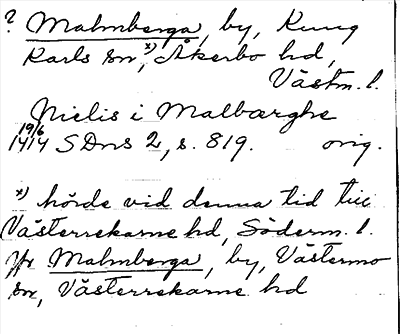 ? Malmberga, by, Kung
Karls sn, x) Åkerbo hd,
Västm. l.
Nielis i Malbærghe
19/6
1414 SDns 2, s. 819. orig.
x) hörde vid denna tid till
Västerrekarne hd, Söderm. l.
Jfr Malmberga, by, Västermo
sn, Västerrekarne hd